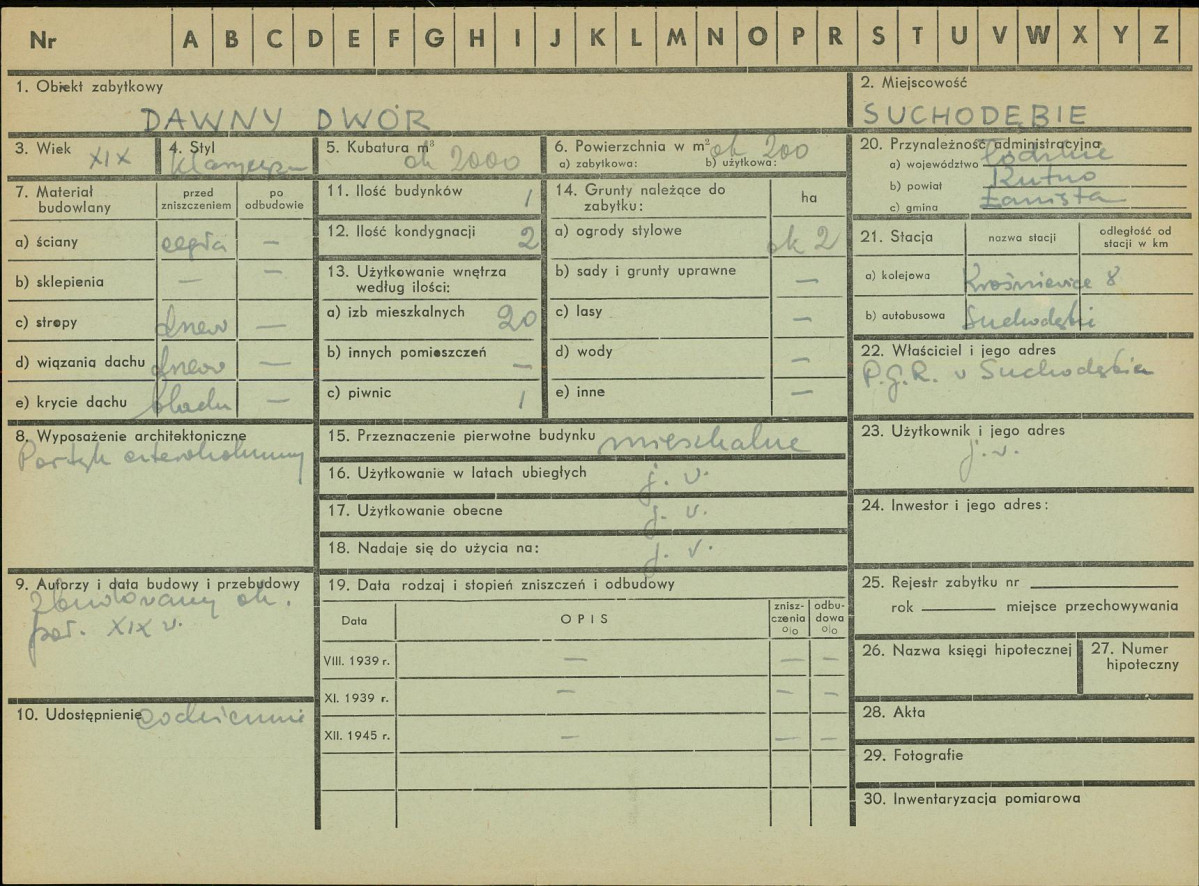 Nr A B C D E F G H I J K L M N O P R S T U V W X Y Z
1. Obiekt zabytkowy
DAWNY DWÓR
2. Miejscowość
SUCHODĘBIE
3. Wiek XIX
4. Styl
5. Kubatura m³ ok 2000
6. Powierzchnia w m² ok 200
a) zabytkowa: b) użytkowa:
7. Materiał budowlany
przed zniszczeniem
po odbudowie
a) ściany cegła –
b) sklepienia – –
c) stropy drewo –
d) wiązania dachu drewo –
e) krycie dachu blacha –
8. Wyposażenie architektoniczne
Portyk czterokolumny
9. Autorzy i data budowy i przebudowy
Zbudowany ok.
poł. XIX w.
10. Udostępnienie codziennie
11. Ilość budynków 1
12. Ilość kondygnacji 2
13. Użytkowanie wnętrza
według ilości:
a) izb mieszkalnych 20
b) innych pomieszczeń –
c) piwnic 1
14. Grunty należące do
zabytku:
ha
a) ogrody stylowe ok 2
b) sady i grunty uprawne –
c) lasy –
d) wody –
e) inne –
15. Przeznaczenie pierwotne budynku mieszkalne
16. Użytkowanie w latach ubiegłych j. w.
17. Użytkowanie obecne j. w.
18. Nadaje się do użycia na: j. w.
19. Data rodzaj i stopień zniszczeń i odbudowy
Data
OPIS
znisz-
czenia
%
odbu-
dowa
%
VIII. 1939 r. – – –
XI. 1939 r. – – –
XII. 1945 r. – – –
20. Przynależność administracyjna
a) województwo łódzkie
b) powiat Kutno
c) gmina Łanięta
21. Stacja
nazwa stacji
odległość od
stacji w km
a) kolejowa Krośniewice 8
b) autobusowa Suchodębie
22. Właściciel i jego adres
P.G.R. w Suchodębiu
23. Użytkownik i jego adres
j. w.
24. Inwestor i jego adres:
25. Rejestr zabytku nr
rok miejsce przechowywania
26. Nazwa księgi hipotecznej
27. Numer
hipoteczny
28. Akta
29. Fotografie
30. Inwentaryzacja pomiarowa